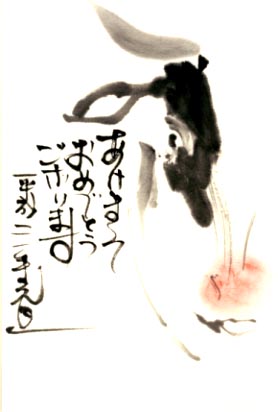 あけまして
おめでとう
ございます
平成二一年元旦